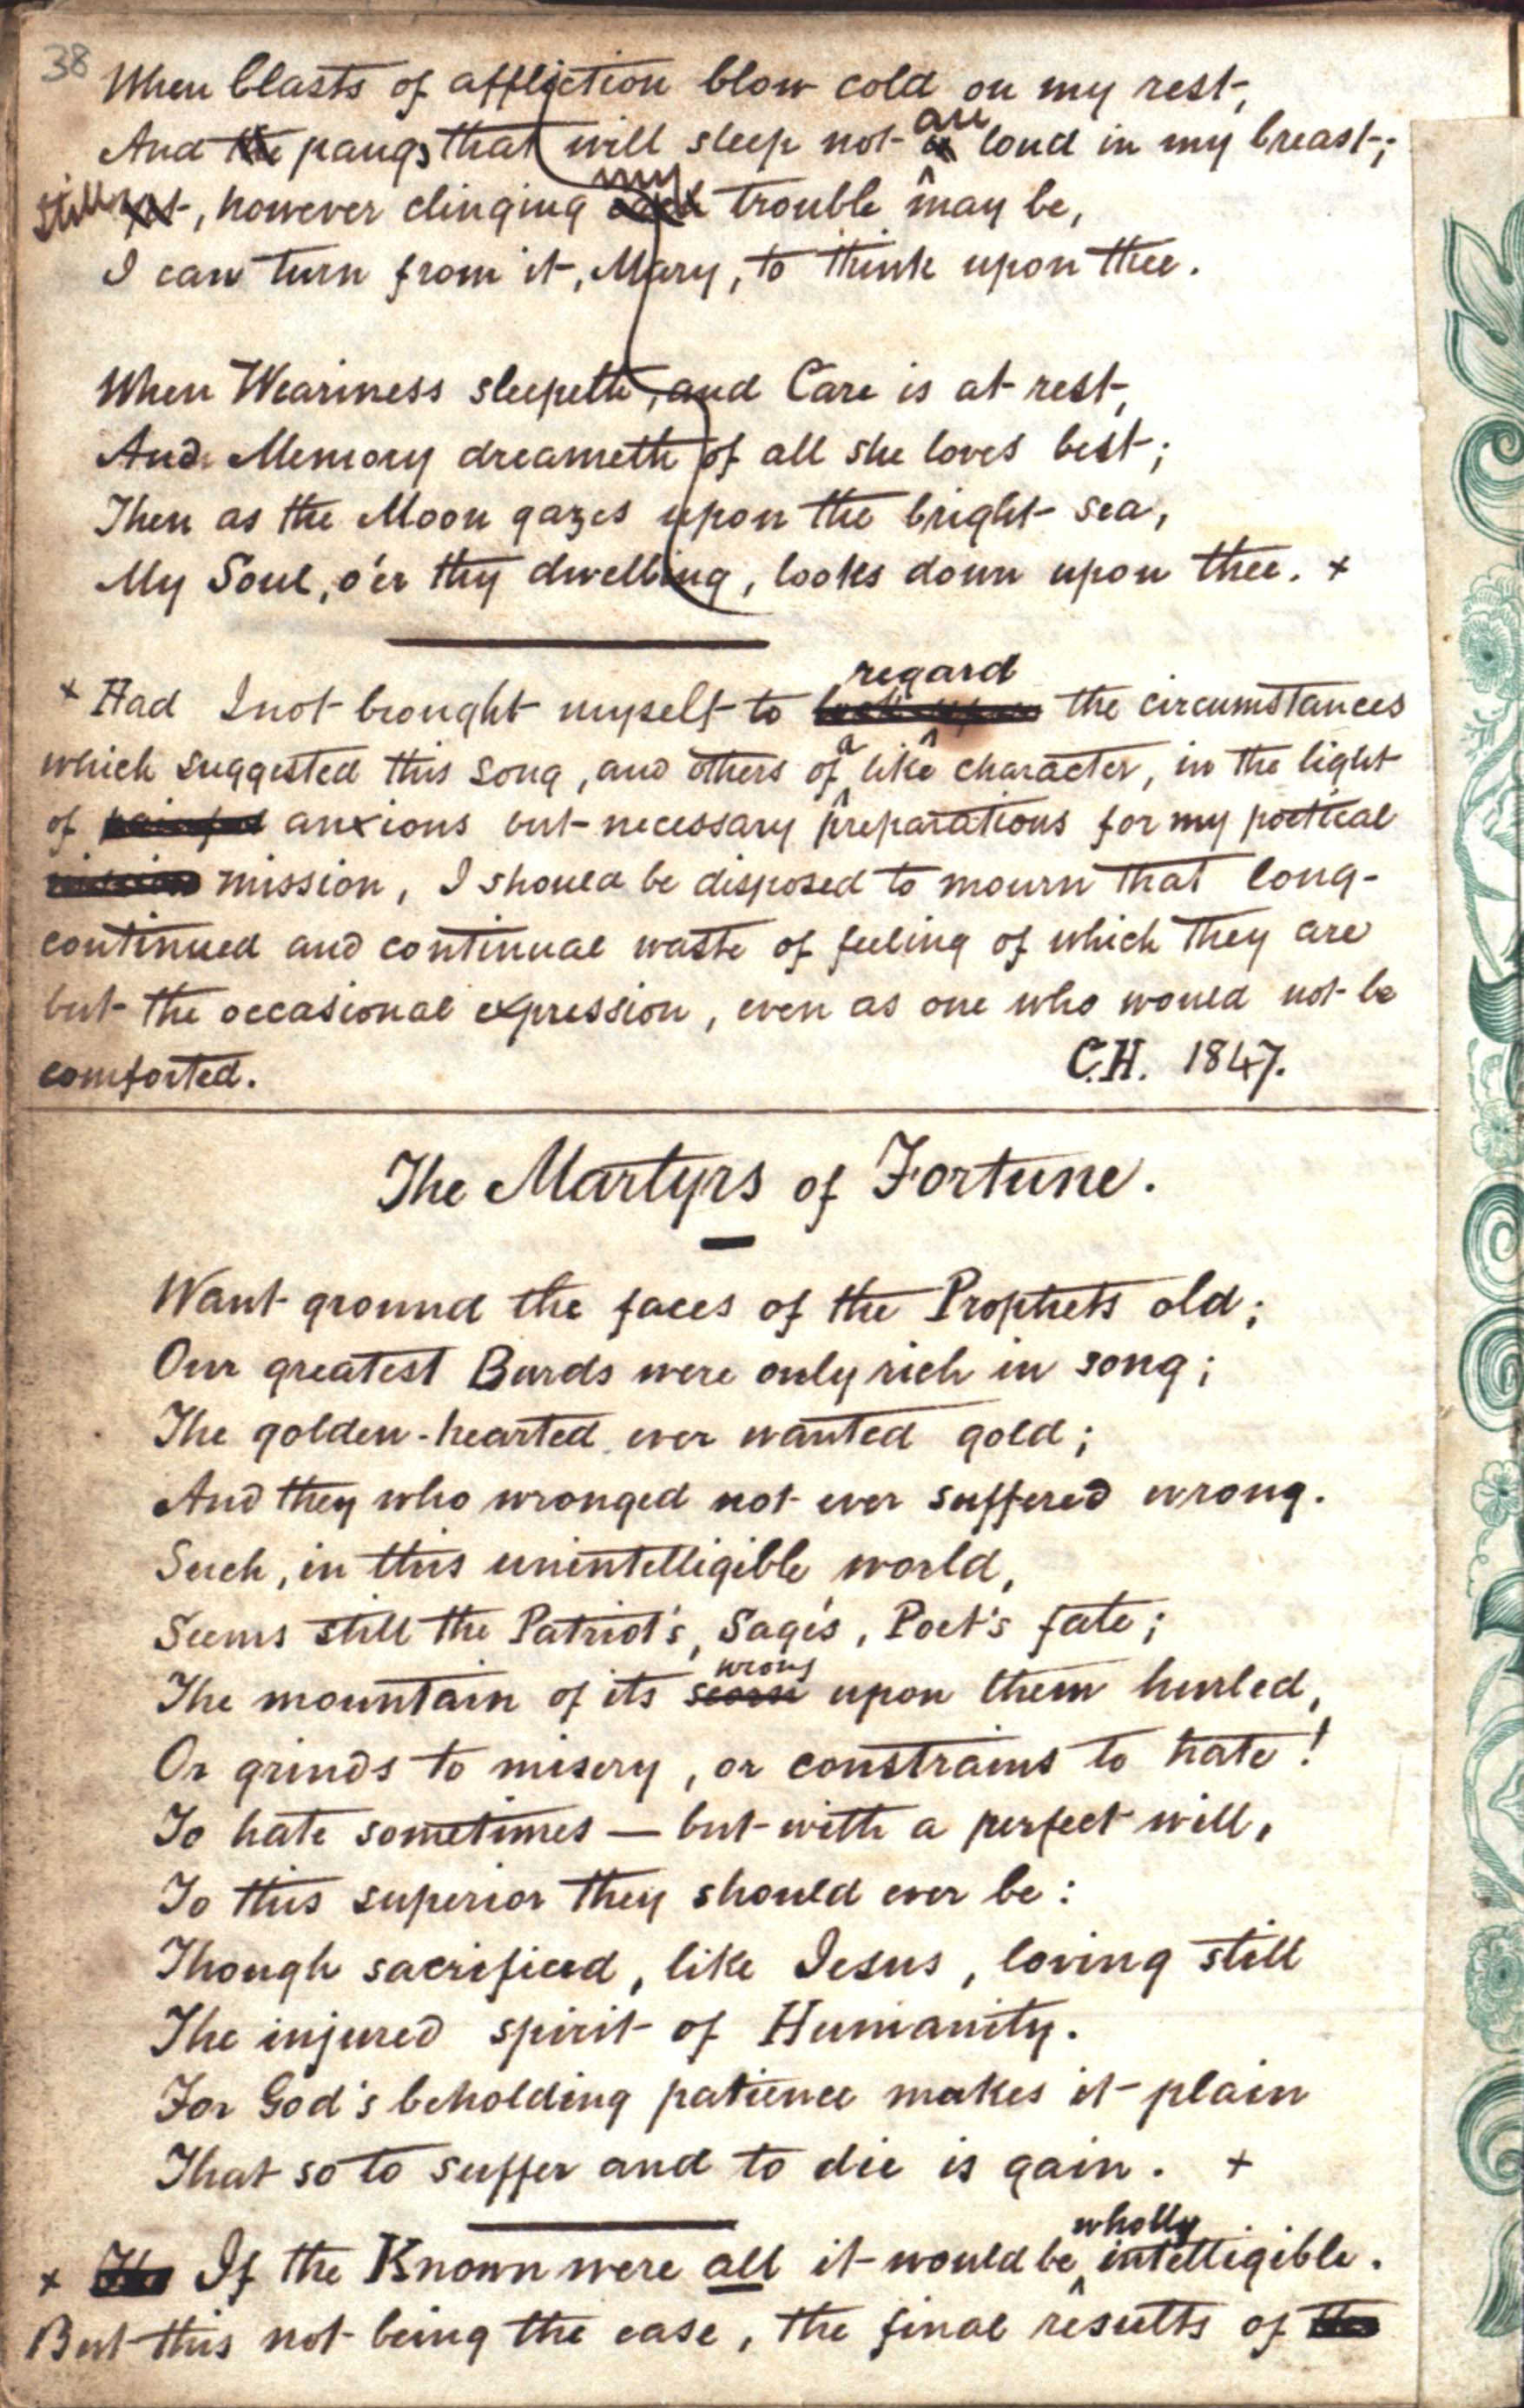 38
When blasts of affliction blow cold on my rest,
And the pangs that will sleep not are loud in my breast;
Still, however clinging my trouble may be,
I can turn from it, Mary, to think upon thee.
When Weariness sleepeth, and Care is at rest,
And Memory dreameth of all she loves best;
Then as the Moon gazes upon the bright sea,
My Soul, o'er thy dwelling, looks down upon thee. +
+ Had I not brought myself to look upon regard the circumstances
which suggested this song, and others of a like character, in the light
of painful anxious but necessary preparations for my poetical
mission mission, I should be disposed to mourn that long-
continued and continual waste of feeling of which they are
but the occasional expression, even as one who would not be
comforted. C.H. 1847.
The Martyrs of Fortune.
Want ground the faces of the Prophets old;
Our greatest Bards were only rich in song;
The golden-hearted ever wanted gold;
And they who wronged not ever suffered wrong.
Such, in this unintelligible world,
Seems still the Patriot's, Sage's, Poet's fate;
The mountain of its scorn wrong upon them hurled,
Or grinds to misery, or constrains to hate!
To hate sometimes — but with a perfect will,
To this superior they should ever be:
Though sacrificed, like Jesus, loving still
The injured spirit of Humanity.
For God's beholding patience makes it plain
That so to suffer and to die is gain. +
+ The If the Known were all it would be wholly intelligible.
But this not being the case, the final results of the